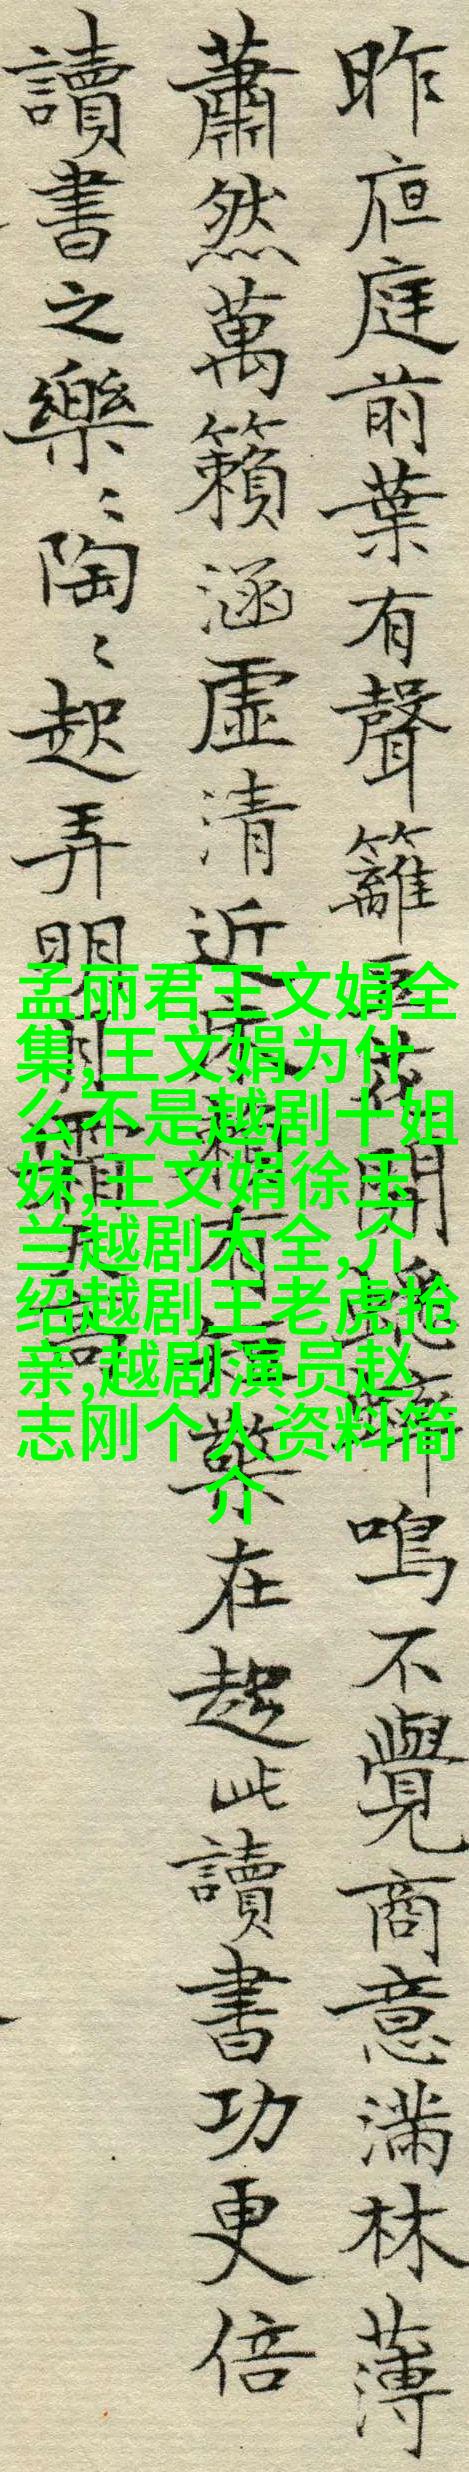 昨亱庭前葉有聲籬豆花開蟋蟀鳴不覺商意滿林薄
蕭然萬籟涵虛清近床賴有短檠在趂此讀書功更倍
讀書之樂〻陶〻起弄明月霜天高
孟丽君王文娟全
集,王文娟为什
么不是越剧十姐
妹,王文娟徐玉
兰越剧大全,介
绍越剧王老虎抢
亲,越剧演员赵
志刚个人资料简
介